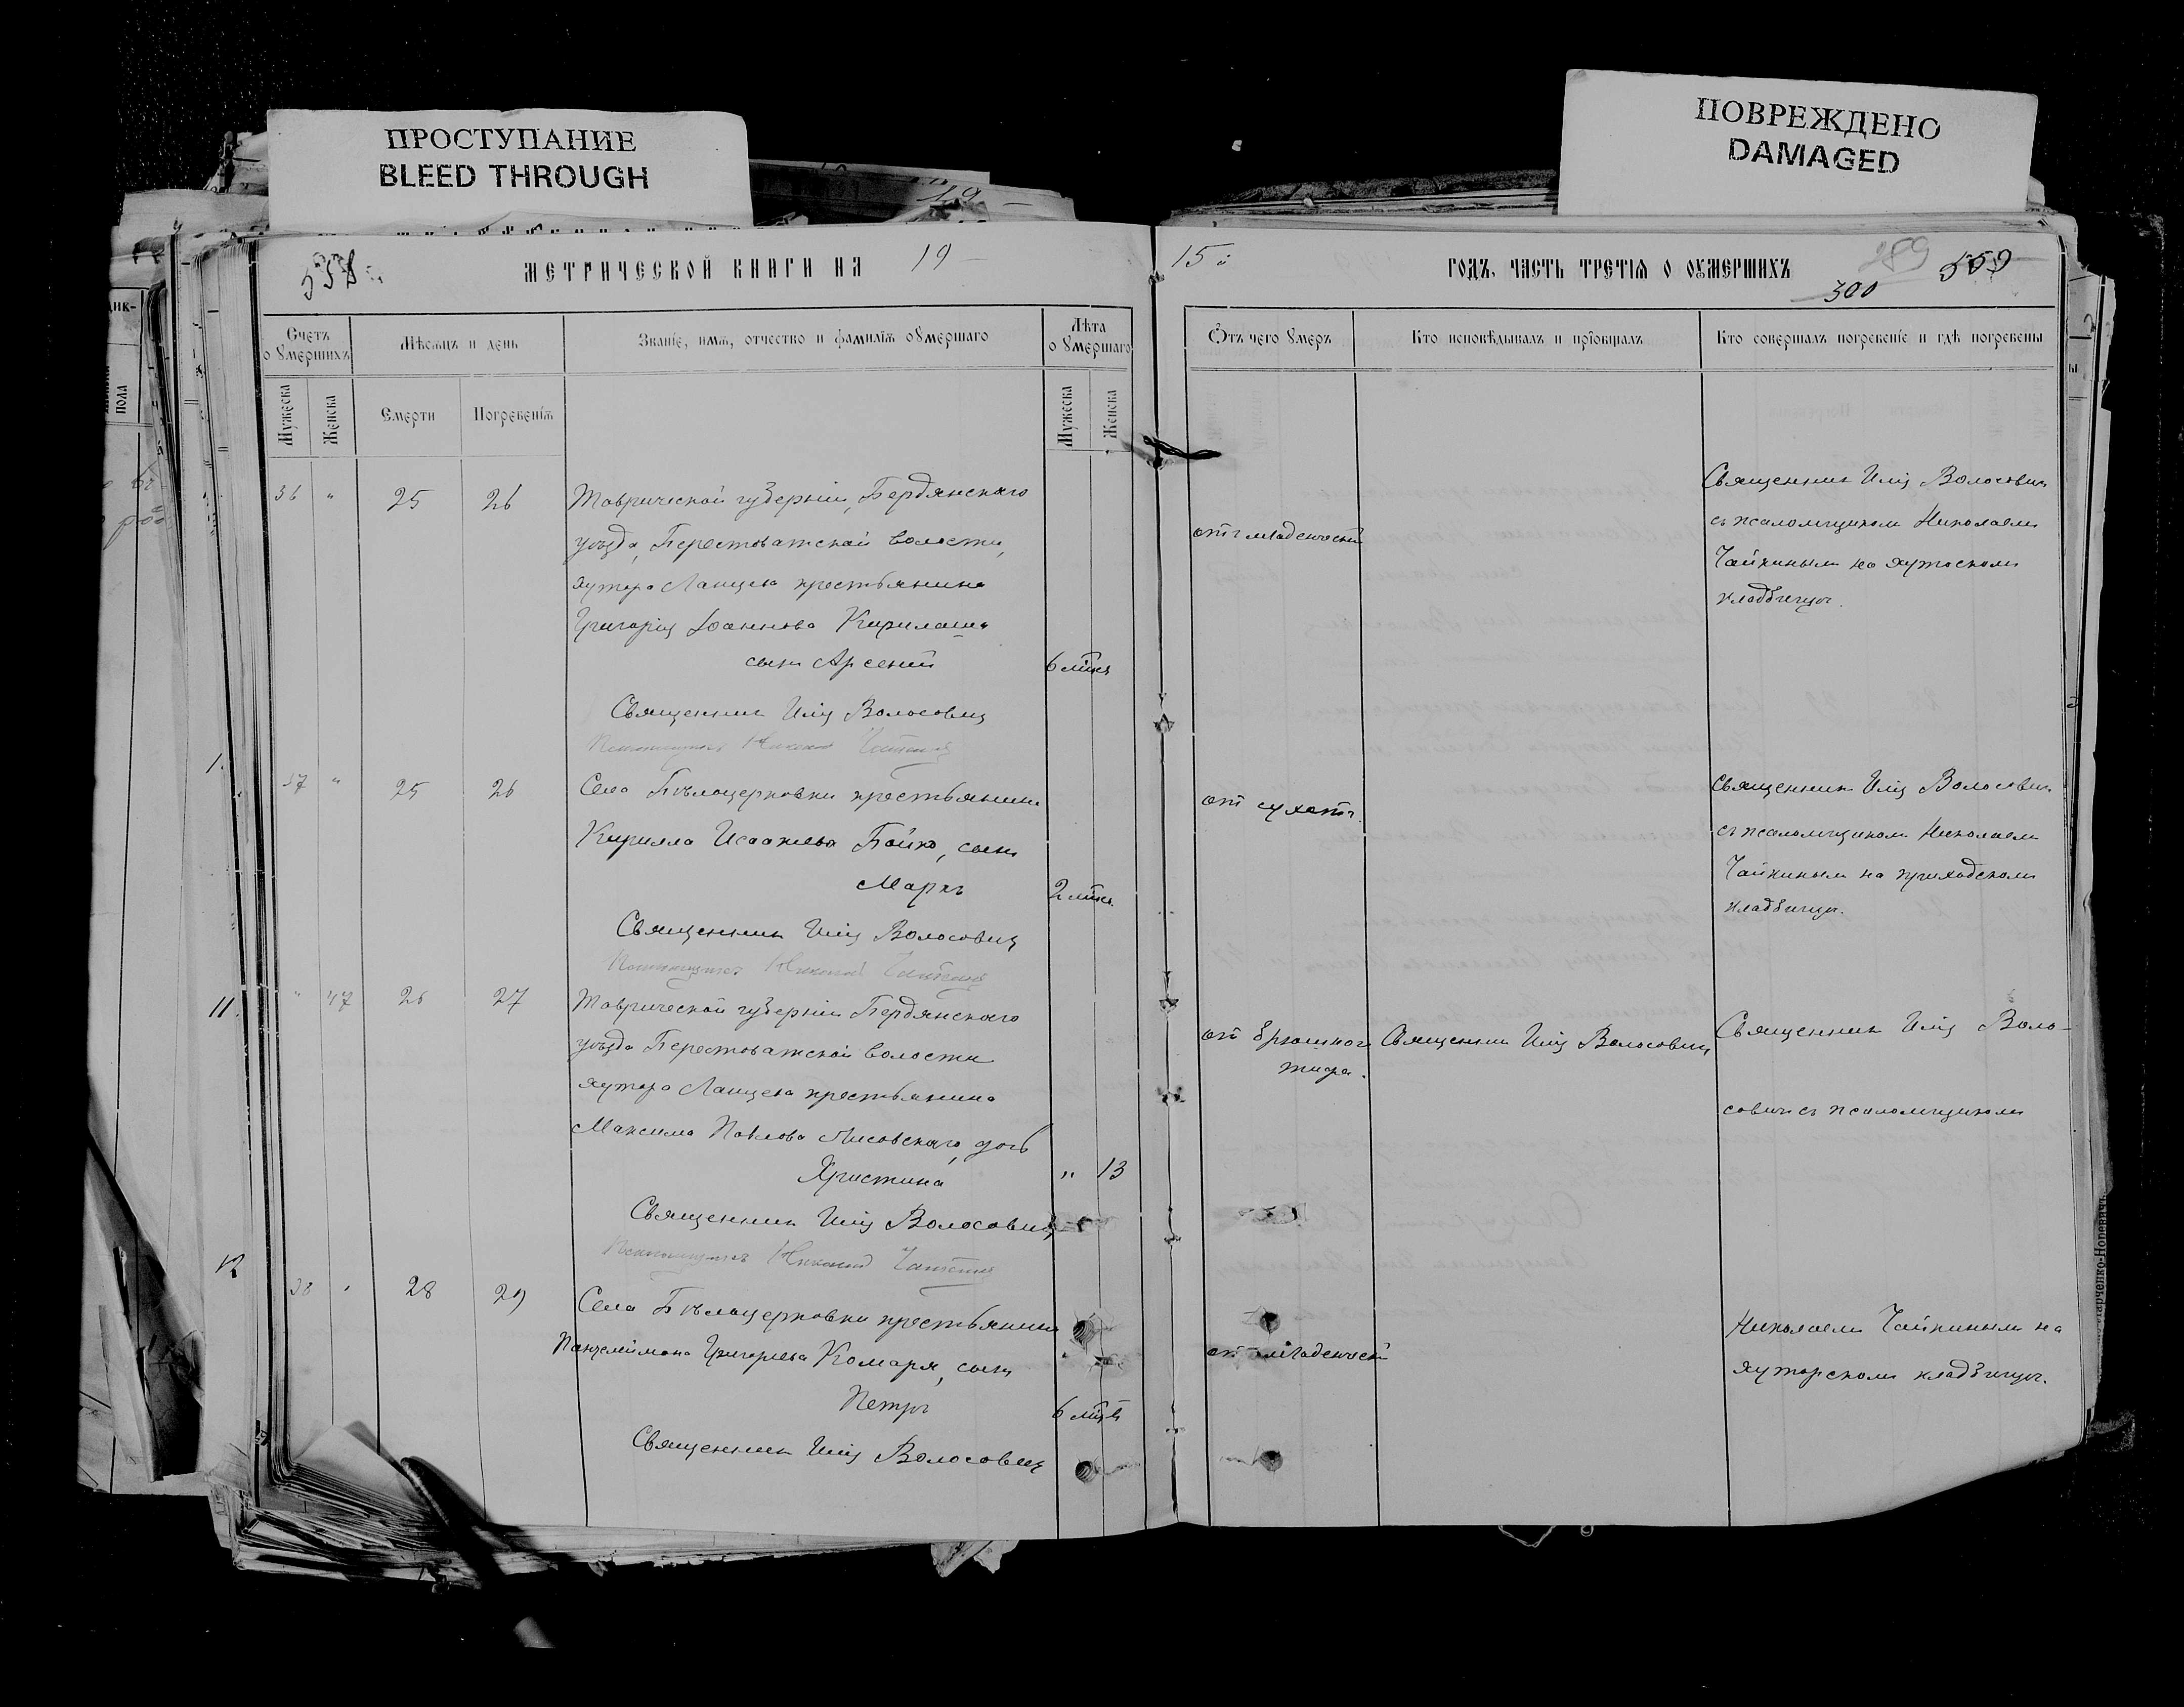 ПРОСТУПАНИЕ
BLEED THROUGH
ПОВРЕЖДЕНО
DAMAGED
МЕТРИЧЕСКОЙ КНИГИ НА 19
15 ГОДЪ, ЧАСТЬ ТРЕТІЯ О ОУМЕРШИХЪ
300
559
Счетъ о умершихъ
Мѣсяцъ и день
Званіе, имя, отчество и фамилія оумершаго
Лѣта оумершаго
Отъ чего умеръ
Кто исповѣдывалъ и пріобщалъ
Кто совершалъ погребеніе и гдѣ погребены
Мужеска
Женска
Смерти
Погребенія
Мужеска
Женска
36 " 25 26
Таврической губерніи, Бердянскаго
уѣзда, Берестоватской волости,
хутора Ланцева крестьянина
Григорія Іоаннова
сынъ Арсеній
6 мѣс
Священникъ Илія Волосовичъ
отъ младенческой
Священникъ Илія Волосовичъ
съ псаломщикомъ Николаемъ
Чайкинымъ на
кладбищѣ.
37 " 25 26
Села Бѣлоцерковки крестьянина
Кирилла Исаакіева Бойко, сынъ
Маркъ
Священникъ Илія Волосовичъ
отъ сухот.
Священникъ Илія Волосовичъ
съ псаломщикомъ Николаемъ
Чайкинымъ на приходскомъ
кладбищѣ.
" 47 26 27
Таврической губерніи Бердянскаго
уѣзда Берестоватской волости
хутора Ланцева крестьянина
Максима Павлова Лисовскаго, дочь
Христина
" 13
Священникъ Илія Волосовичъ
отъ брюшного
тифа.
Священникъ Илія Волосовичъ
Священникъ Илія Воло-
совичъ съ псаломщикомъ
Николаемъ Чайкинымъ на
хуторскомъ кладбищѣ.
38 " 28 29
Села Бѣлоцерковки крестьянина
Пантелеймона Григорьева Комаря, сынъ
Петръ
6 мѣс
Священникъ Илія Волосовичъ
отъ младенческой